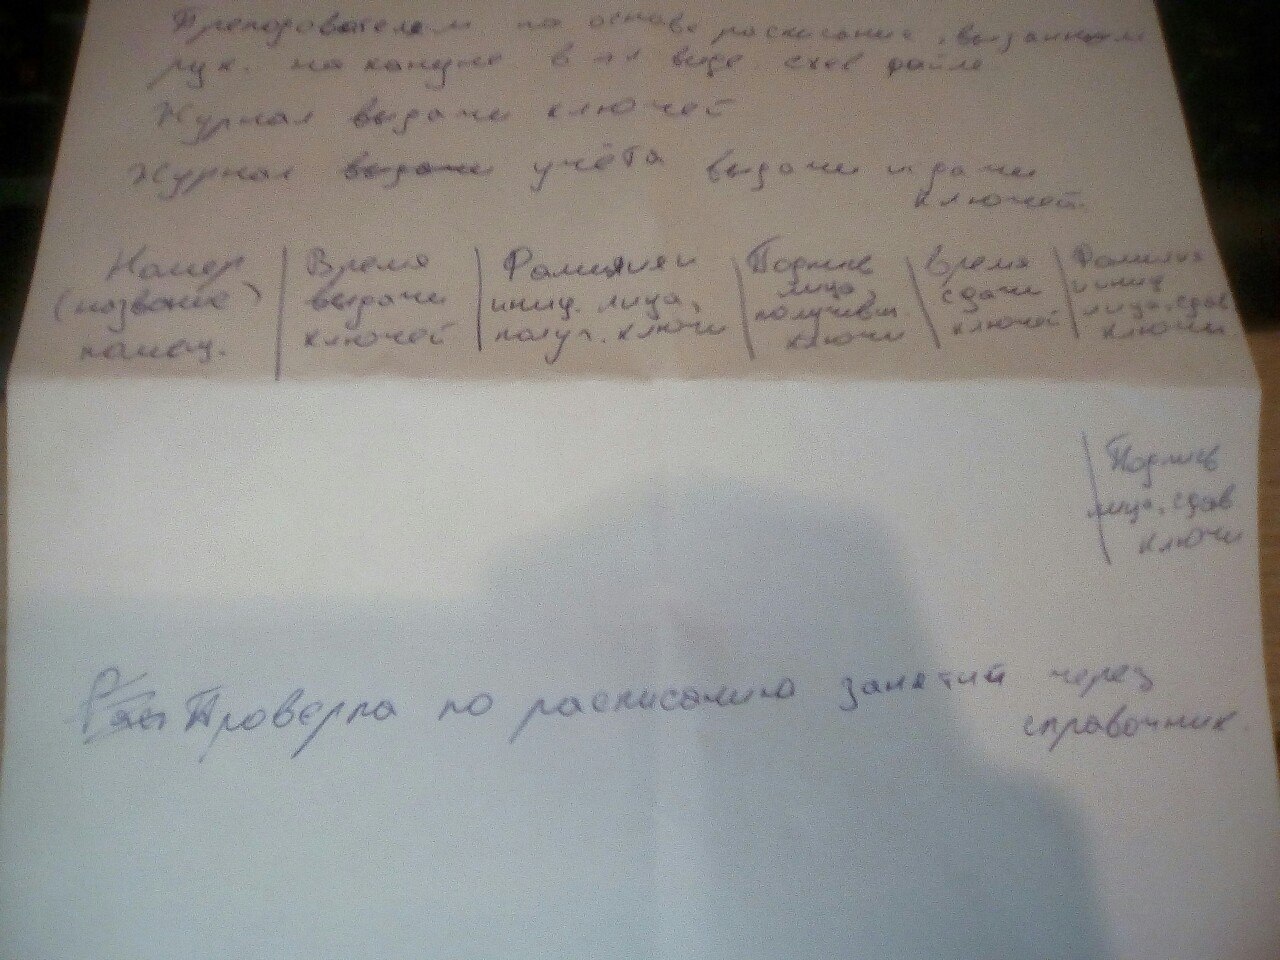 Преподавателем по основе расписания, выданным
рук. на кануне в эл виде excel файле
Журнал выдачи ключей
Журнал выдачи учёта выдачи и дачи
ключей.
Номер (название) помещ.
Время выдачи ключей
Фамилия и иниц. лица, получ. ключи
Подпись лица, получивш ключи
Время сдачи ключей
Фамилия и иниц лица, сдав ключи
Подпись
лица, сдав
ключи
Проверка по расписанию занятий через
справочник.